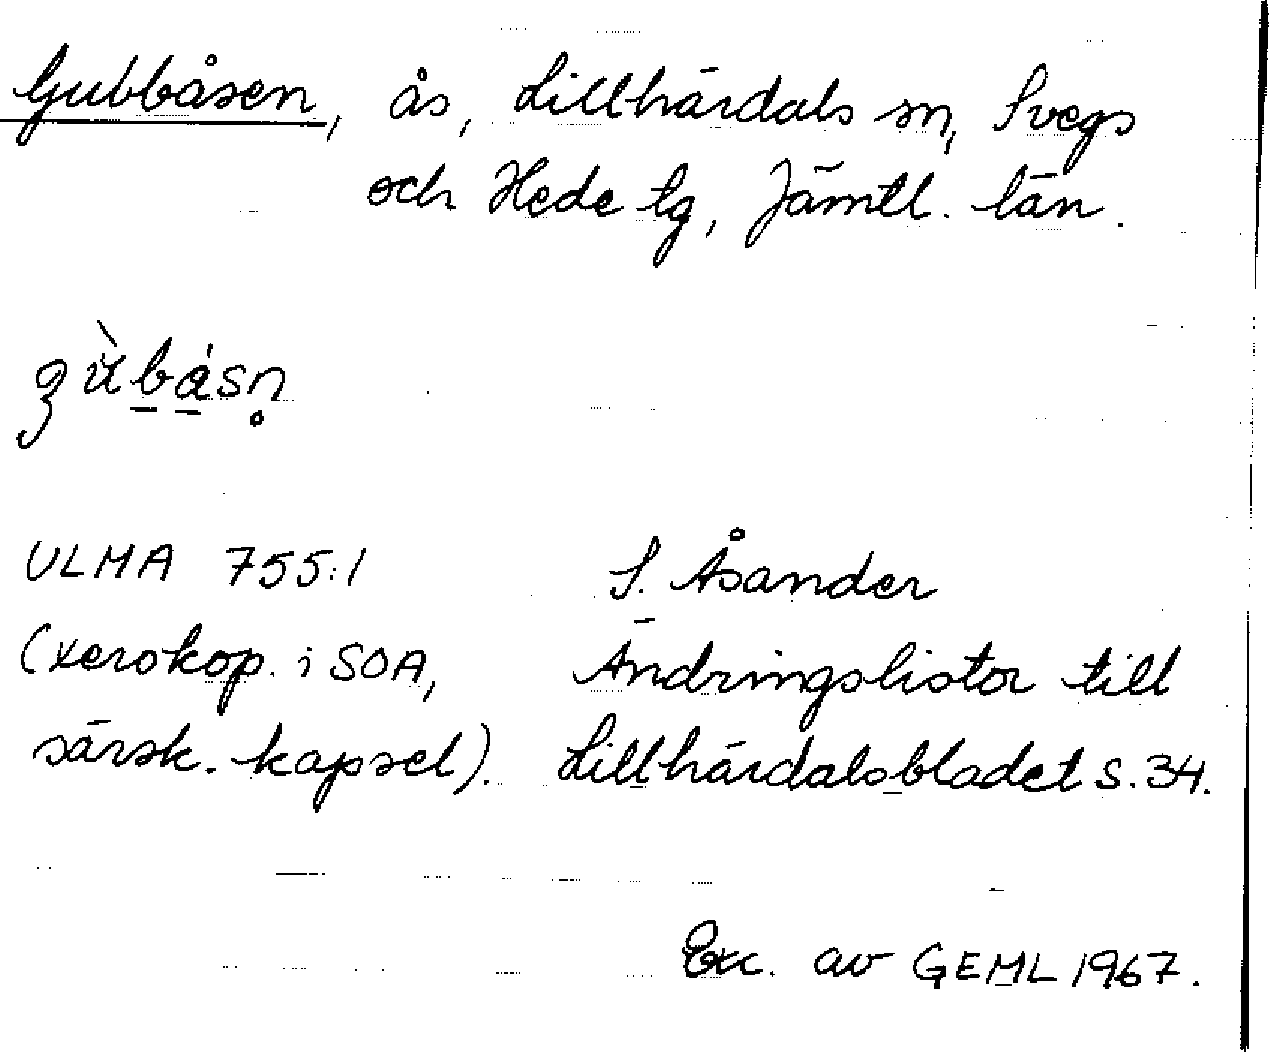 Gubbåsen, ås, Lillhärdals sn, Svegs
och Hede tg, Jämtl. län.
ULMA 755:1 S. Åsander
(xerokop. i SOA, Ändringslistor till
särsk. kapsel). Lillhärdalsbladet s. 34.
Exc. av GEML 1967.